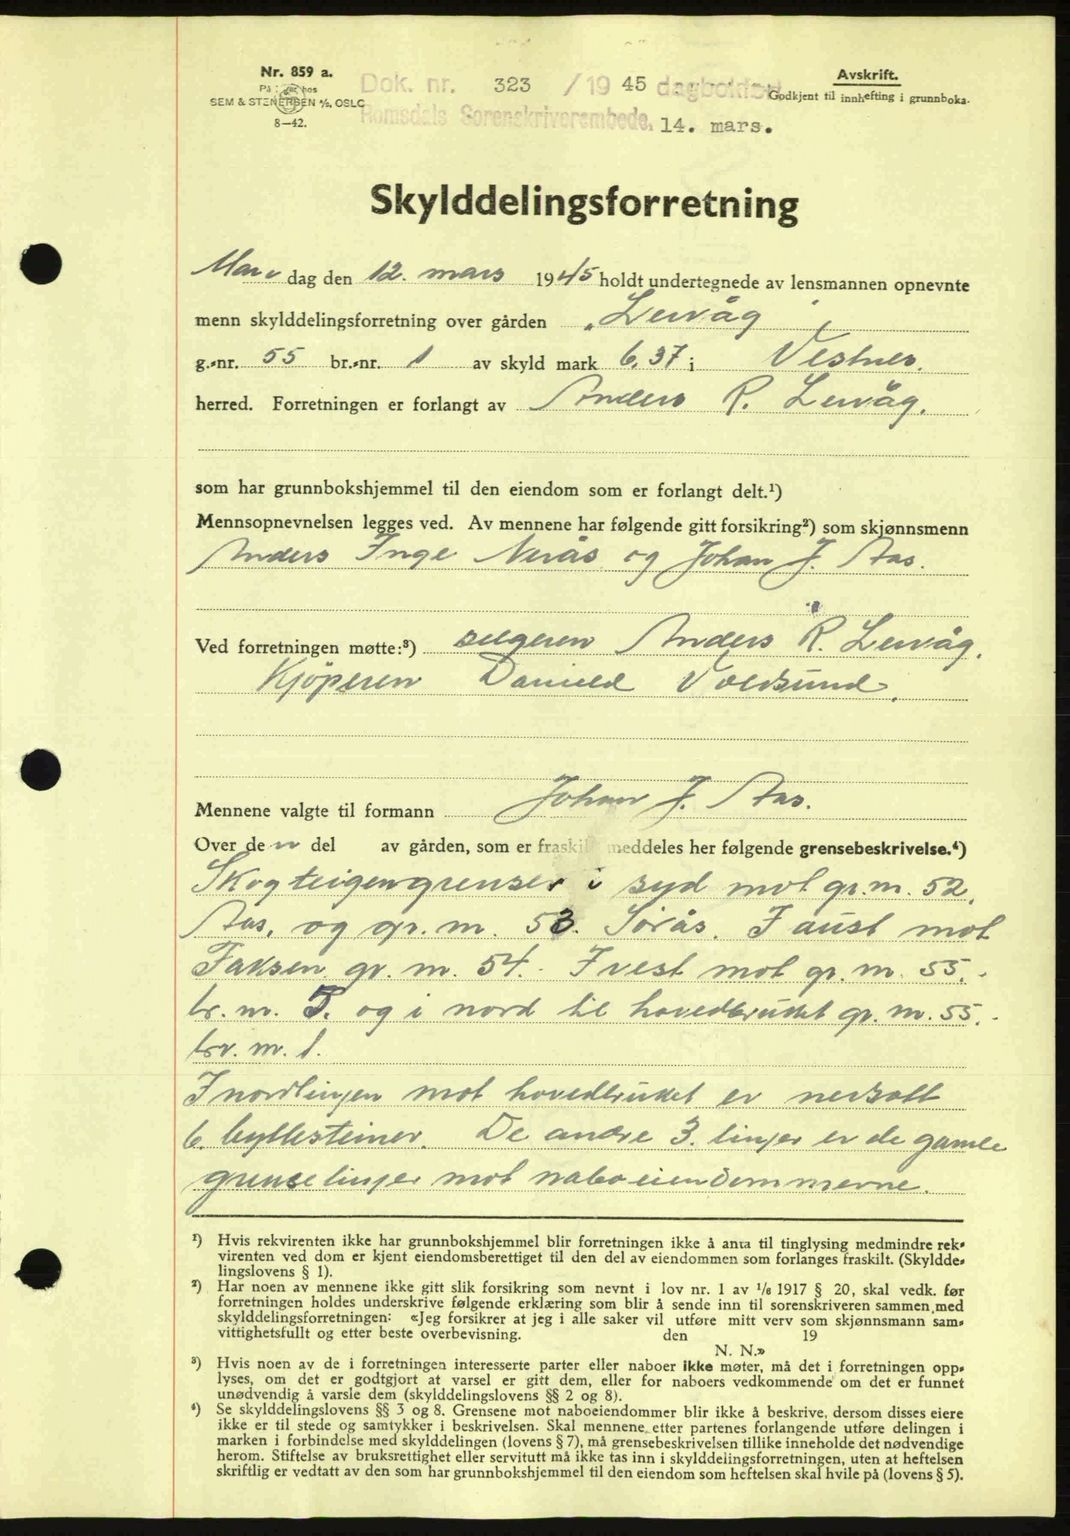 Nr. 859 a.
På lager hos
SEM & STENERSEN A/S, OSLO
8—42.
Dok. nr. 323 / 19 45 dagbokført
Romsdals Sorenskriverembede, 14. mars.
Avskrift.
Godkjent til innhefting i grunnboka.
Skylddelingsforretning
Man dag den 12. mars 1945 holdt undertegnede av lensmannen opnevnte
menn skylddelingsforretning over gården "Leirvåg"
g.-nr. 55 br.-nr. 1 av skyld mark 6,37 i Vestnes.
herred. Forretningen er forlangt av Anders R. Leirvåg.
som har grunnbokshjemmel til den eiendom som er forlangt delt.¹)
Mennsopnevnelsen legges ved. Av mennene har følgende gitt forsikring²) som skjønnsmenn
Anders Inge Nerås og Johan J. Aas.
Ved forretningen møtte:³) selgeren Anders R. Leirvåg.
Kjöperen Danield Voldsund.
Mennene valgte til formann Johan J. Aas.
Over den del av gården, som er fraskilt meddeles her følgende grensebeskrivelse.⁴)
Skogteigen grenser i syd mot gr. nr. 52,
Aas, og gr. nr. 53. Sørås. I aust mot
Faksen gr. nr. 54. - I vest mot gr. nr. 55. -
br. nr. 5. og i nord til hovedbruket gr. nr. 55. -
br. nr. 1.
I nordlinjen mot hovedbruket er nedsatt
6. byttesteiner. De andre 3. linjer er de gamle
grenselinjer mot naboeiendommerne.
¹) Hvis rekvirenten ikke har grunnbokshjemmel blir forretningen ikke å anta til tinglysing medmindre rek-
virenten ved dom er kjent eiendomsberettiget til den del av eiendommen som forlanges fraskilt. (Skyldde-
lingslovens § 1).
²) Har noen av mennene ikke gitt slik forsikring som nevnt i lov nr. 1 av 1/6 1917 § 20, skal vedk. før
forretningen holdes underskrive følgende erklæring som blir å sende inn til sorenskriveren sammen med
skylddelingsforretningen: «Jeg forsikrer at jeg i alle saker vil utføre mitt verv som skjønnsmann sam-
vittighetsfullt og etter beste overbevisning. den 19
N. N.»
³) Hvis noen av de i forretningen interesserte parter eller naboer ikke møter, må det i forretningen opp-
lyses, om det er godtgjort at varsel er gitt dem, eller for naboers vedkommende om det er funnet
unødvendig å varsle dem (skylddelingslovens §§ 2 og 8).
⁴) Se skylddelingslovens §§ 3 og 8. Grensene mot naboeiendommer blir ikke å beskrive, dersom disses eiere
ikke er til stede og samtykker i beskrivelsen. Skal mennene etter partenes forlangende utføre delingen i
marken i forbindelse med skylddelingen (lovens § 7), må grensebeskrivelsen tillike inneholde det nødvendige
herom. Stiftelse av bruksrettighet eller servitutt må ikke tas inn i skylddelingsforretningen, uten at heftelsen
skriftlig er vedtatt av den som har grunnbokshjemmel til den eiendom som heftelsen skal hvile på (lovens § 5).